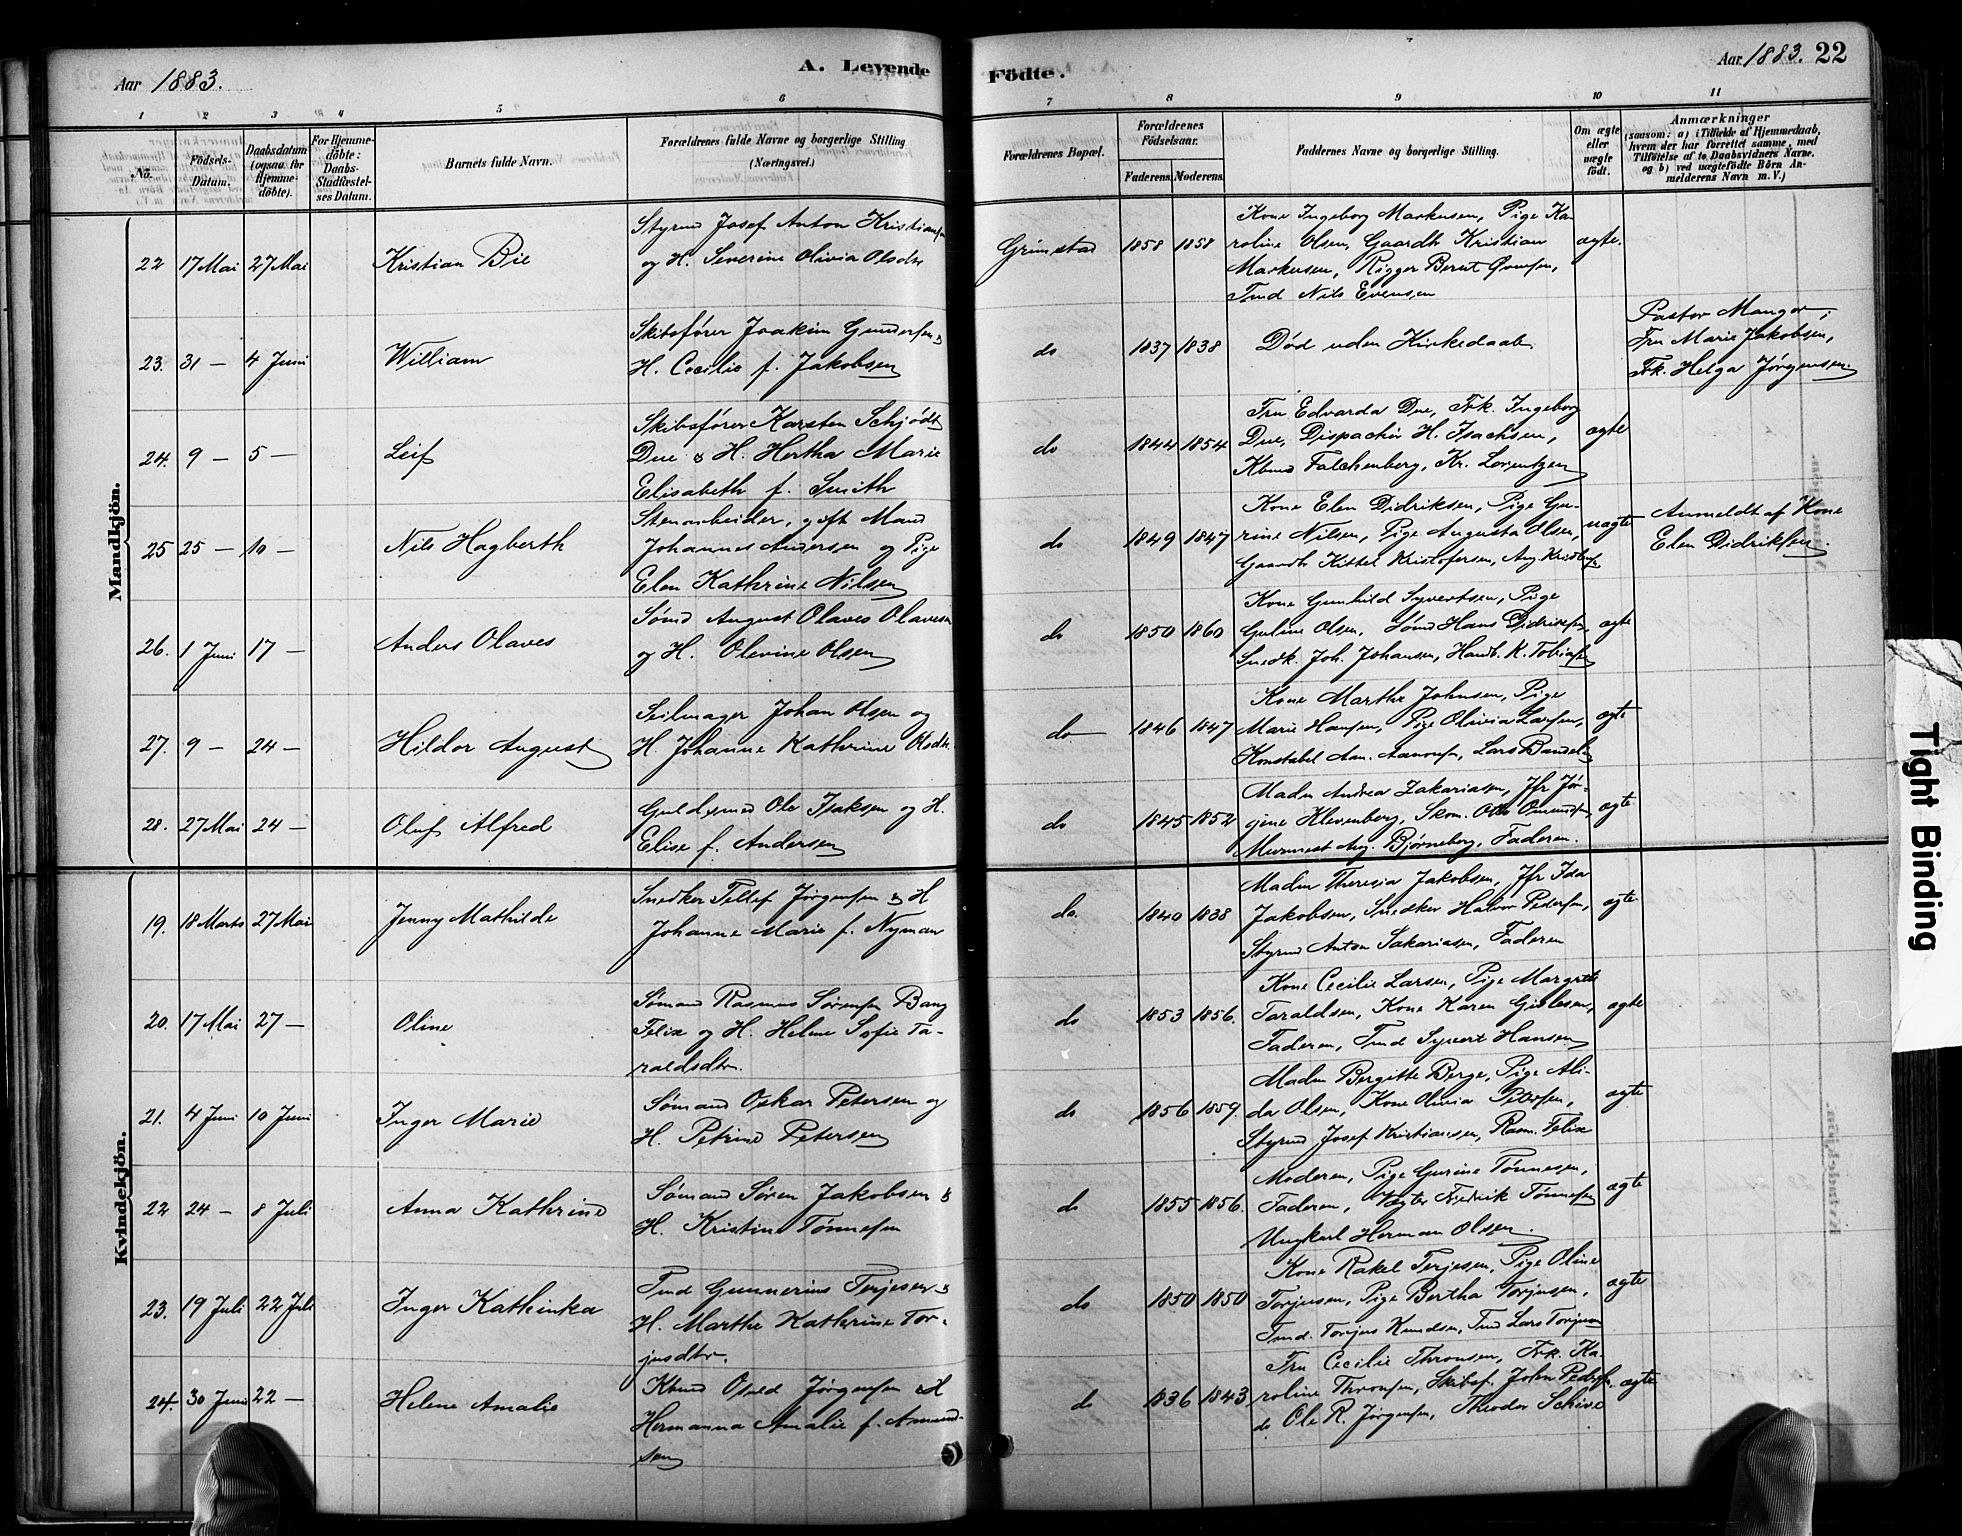 Aar 1883.
A. Levende
Födte.
Aar 1883. 22
1 2 3 4 5 6 7 8 9 10 11
No.
Födsels-Datum.
Daabsdatum (ogsaa for Hjemme-döbte).
For Hjemme-döbte: Daabs-Stadfæstel-ses Datum.
Barnets fulde Navn.
Forældrenes fulde Navne og borgerlige Stilling (Næringsvei.)
Forældrenes Bopæl.
Forældrenes Födselsaar.
Faderens. Moderens.
Faddernes Navne og borgerlige Stilling.
Om ægte eller uægte födt.
Anmærkninger
(saasom: a) i Tilfælde af Hjemmedaab,
hvem der har forrettet samme, med
Tilföielse af to Daabsvidners Navne.
og b) ved uægtefödte Börn An-
melderens Navn m. V.)
Mandkjön.
22 17 Mai 27 Mai Kristian Bie
Styrmd Josef Anton Kristiansen
og H. Severine Olivia Olsdtr
Grimstad 1858 1858
Kone Ingeborg Markusen, Pige Ka-
roline Olsen, Gaardbr Kristian
Markusen, Rigger Berut
Tmd Nils Evensen
ægte.
23. 31 — 4 Juni William
Skibsfører Joakim Gundersen &
H. Cecilie f. Jakobsen
do 1837 1838
Død uden Kirkedaab
Pastor Mangor,
Fru Marie Jakobsen,
Frk. Helga Jørgensen
24. 9 — 5 — Leif
Skibsfører Karsten Schjødt
Due & H. Hertha Marie
Elisabeth f. Smith
do 1844 1854
Fru Edvarda Due, Frk. Ingeborg
Due, Dispachør H. Isachsen,
Kbmd Falchenberg, Kr. Lorentzen
ægte
25 25 — 10 — Nils Hagberth
Stenarbeider, gift Mand
Johannes Andersen og Pige
Elen Kathrine Nilsen
do 1849 1847
Kone Elen Didriksen, Pige Gu-
rine Nilsen, Pige Augusta Olsen,
Gaardb Kittel Kristofersen, Aug Kristofs
uægte
Anmeldt af Kone
Elen Didriksen.
26. 1 Juni 17 — Anders Olaves
Sømd August Olaves Olavesen
og H. Olevine Olsen
do 1850 1860
Kone Gunhild Syvertsen, Pige
Guline Olsen, Sømd Hans Didriksen,
Snedk. Joh. Johansen, Handb. K. Tobiasen
ægte
27. 9 — 24 — Hildor August
Seilmager Johan Olsen og
H. Johanne Kathrine Olsdtr.
do 1846 1847
Kone Marthe Johnsen, Pige
Marie Hansen, Pige Olivia Larsen,
Konstabel Aan. Aanonsen, Lars
ægte
28. 27 Mai 24 — Oluf Alfred
Guldsmed Ole Isaksen og H.
Elise f. Andersen
do 1845 1852
Madm Andrea Zakariasen, Jfr Jør-
gine Klevenberg, Skom. Otto Omundsen,
Murmest Aug. Bjørneborg, Faderen.
ægte
Kvindekjön.
19. 18 Marts 27 Mai Jenny Mathilde
Snedker Tellef Jørgensen & H
Johanne Marie f. Nyman
do. 1840 1838
Madm Theresia Jakobsen, Jfr Ida
Jakobsen, Snedker Halvor Pedersen,
Styrmd Anton Sakariasen, Faderen
ægte
20. 17 Mai 27 — Oline
Sømand Rasmus Sørensen Bang
Felix og H. Helene Sofie Ta-
raldsdtr.
do 1853 1856.
Kone Cecilie Larsen, Pige Margrete
Taraldsen, Kone Karen
Faderen, Tmd Syvert Hansen
ægte
21. 4 Juni 10 Juni Inger Marie
Sømand Oskar Petersen og
H. Petrine Petersen
do 1856 1859.
Madm Bergitte Berge, Pige Ali-
da Olsen, Kone Olivia Petersen,
Styrmd Josef Kristiansen, Rasm. Felix
ægte
22 24 — 8 Juli Anna Kathrine
Sømand Søren Jakobsen &
H. Kristine Tønnesen
do 1855 1856.
Moderen, Pige Gurine Tønnesen,
Faderen, Vogter Fredrik Tønnesen
Ungkarl Herman Olsen.
ægte
23. 19 Juli 22 Juli Inger Kathinka
Tmd Gunnerius Terjesen &
H. Marthe Kathrine Tor-
jusdtr.
do 1850 1850
Kone Rakel Terjesen, Pige Oline
Torjusen, Pige Bertha Torjusen,
Tmd. Torjus Knudsen, Tmd Lars Torjusen
ægte
24. 30 Juni 22 — Helene Amalie
Kbmd Osuld Jørgensen & H
Hermanna Amalie f. Amund-
sen
do 1836 1843
Fru Cecilie Thronsen, Frk. Ka-
roline Thronsen, Skibsf. John Pedersen,
do Ole R. Jørgensen, Theodor Schive
ægte
Tight Binding